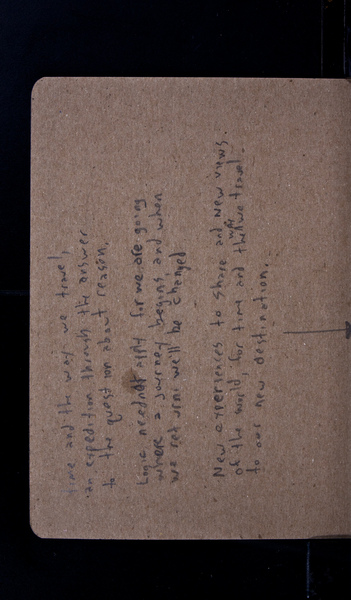 time and the way we travel,
an expedition through the answer
to the question about reason.
Logic need not apply for we are going
where a journey begins, and when
we return we'll be changed
New experiences to share and New views
of the world, for time and the way we travel
to our new destination.